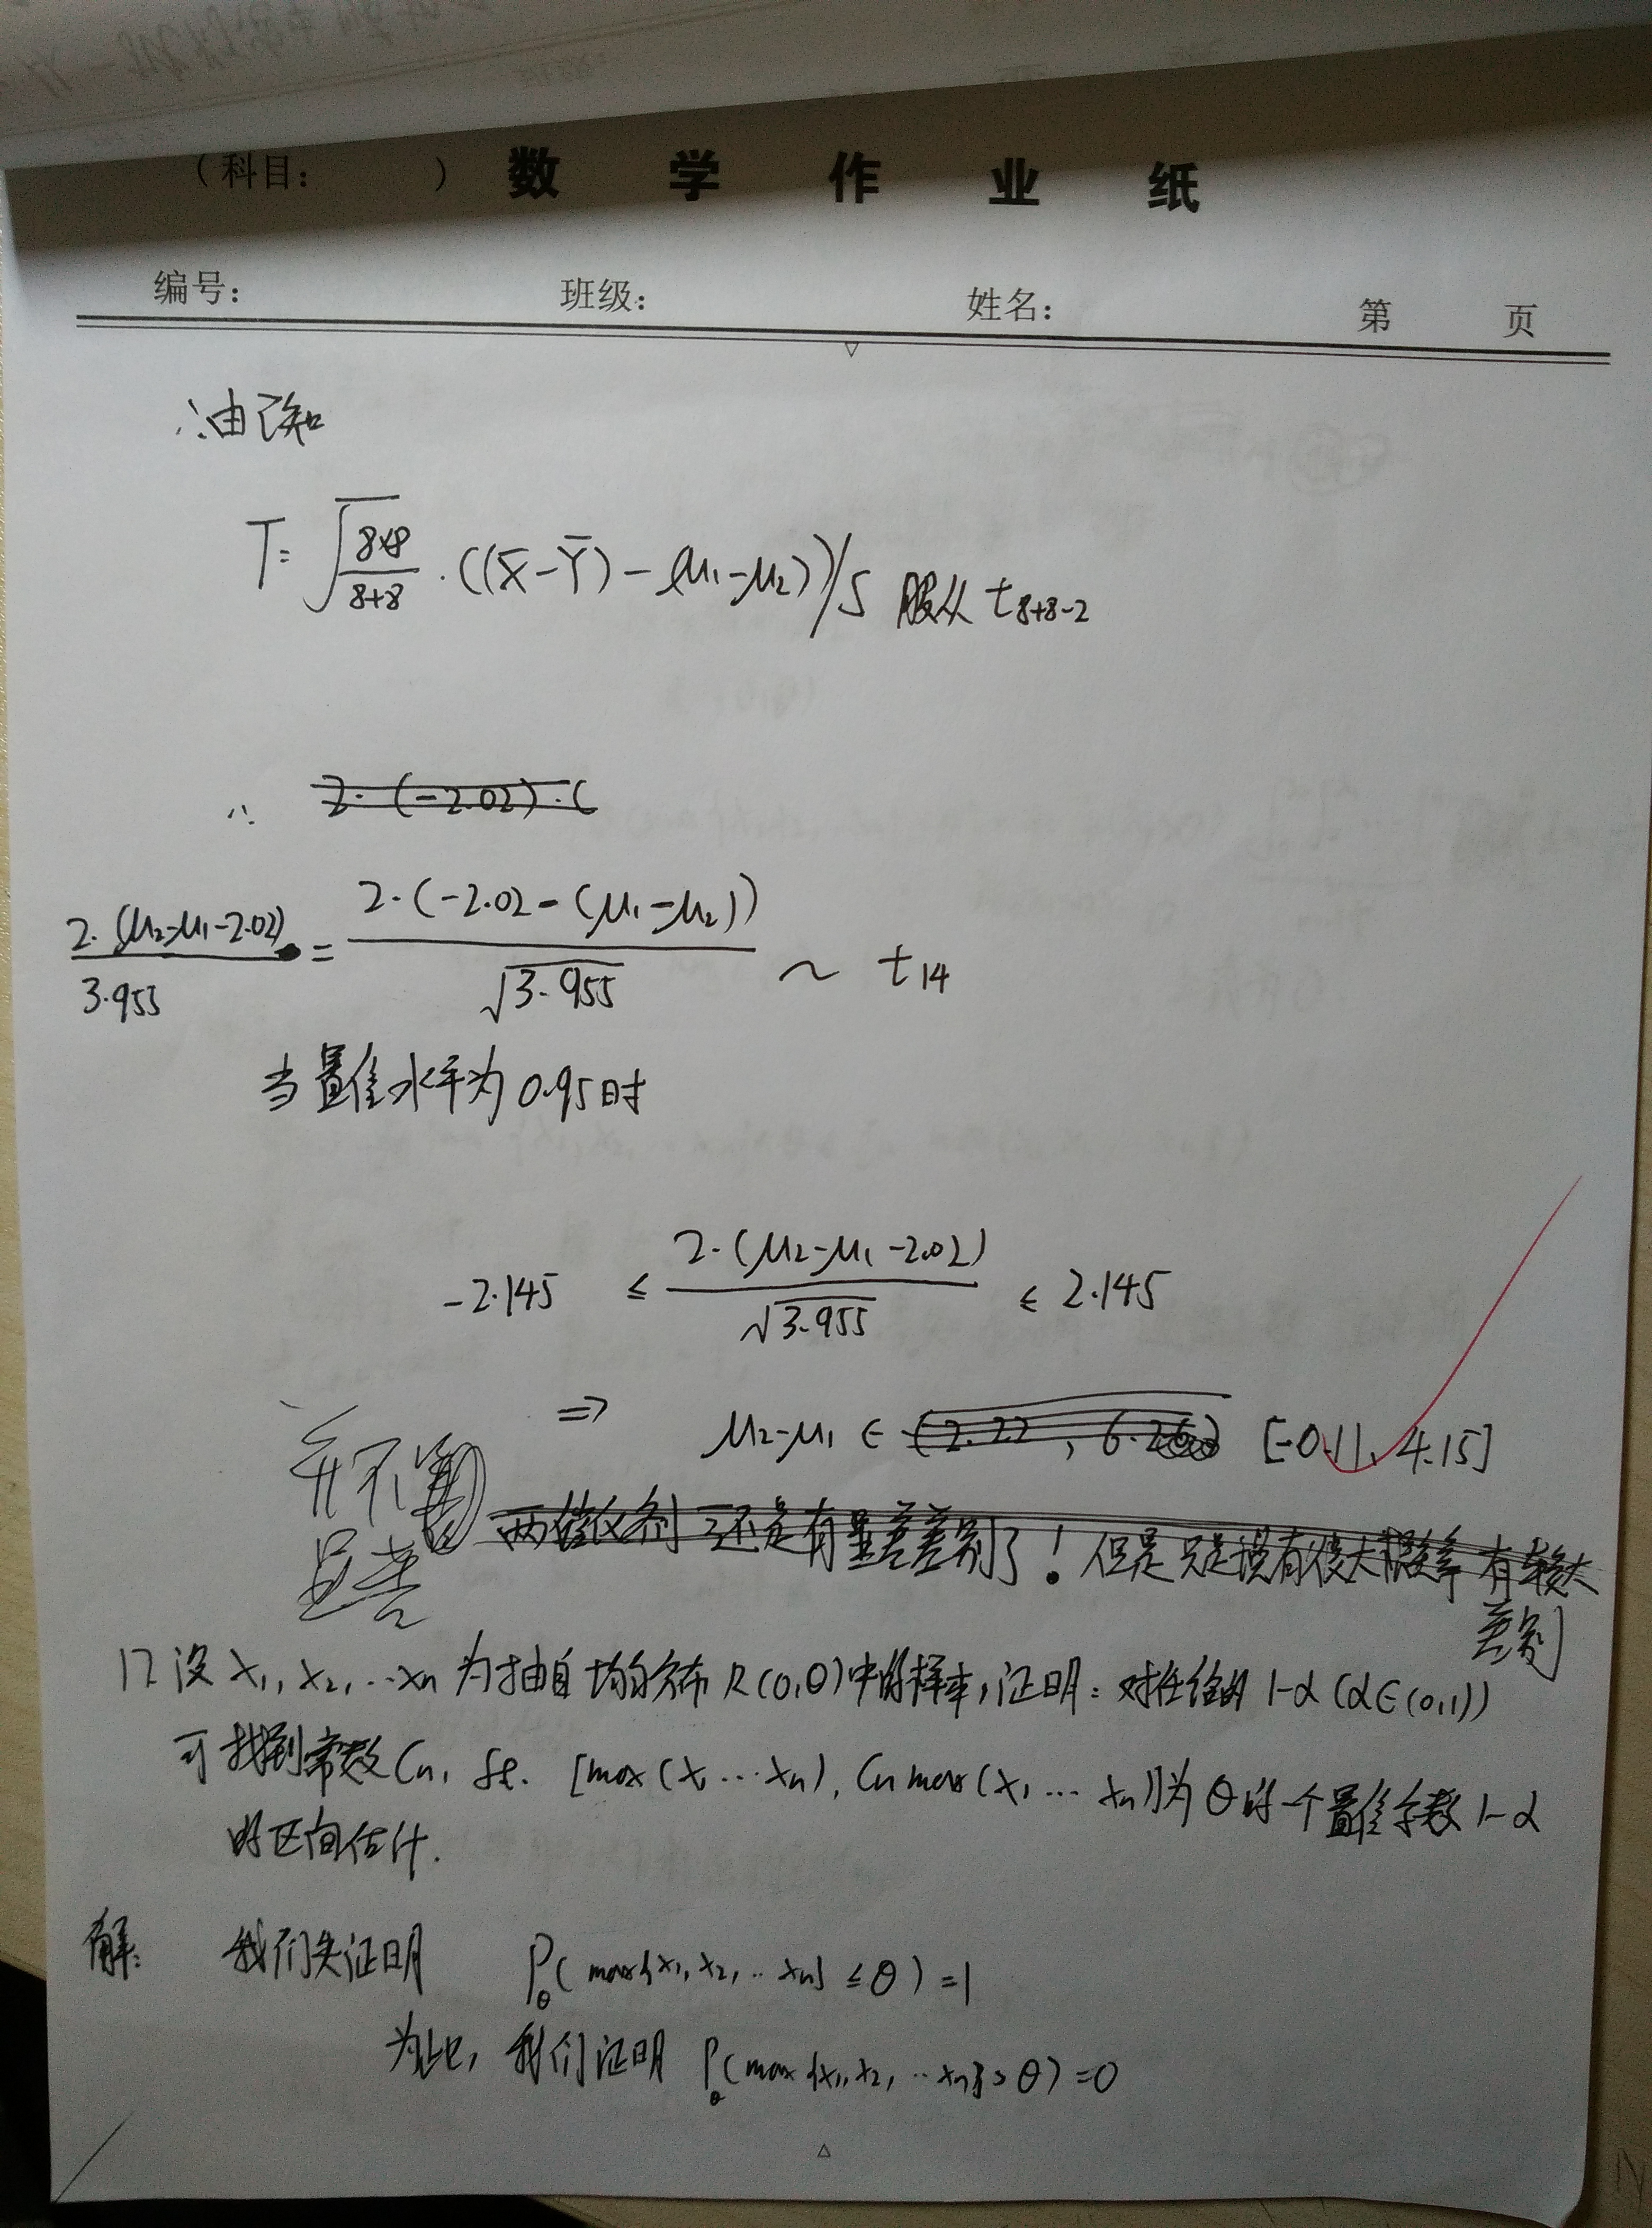 （科目：　　）数学作业纸
编号：　班级：　姓名：　第　页
∴由已知
T= √(8×8/8+8) · ((X̄-Ȳ)-(μ1-μ2))/S 服从 t8+8-2
∴ 2·(-2.02)·(
2·(μ2-μ1-2.02)/3.955 = 2·(-2.02-(μ1-μ2))/√3.955 ~ t14
当置信水平为0.95时
-2.145 ≤ 2·(μ2-μ1-2.02)/√3.955 ≤ 2.145
⇒ μ2-μ1 ∈ (2.22, 6.26) [-0.11, 4.15]
并不
显著
还是有显著差别了！但是只是说有很大概率有较大
差别
17 设 x1, x2, …xn 为抽自均匀分布 R(0,θ)中的样本，证明：对任给的 1-α (α∈(0,1))
可找到常数Cn, st. [max(x1…xn), Cn max(x1…xn)]为θ的一个置信系数1-α
的区间估计.
解：　我们先证明　Pθ(max{x1, x2, ‥xn} ≤θ)=1
为此，我们证明 Pθ(max{x1,x2, ‥xn}>θ)=0